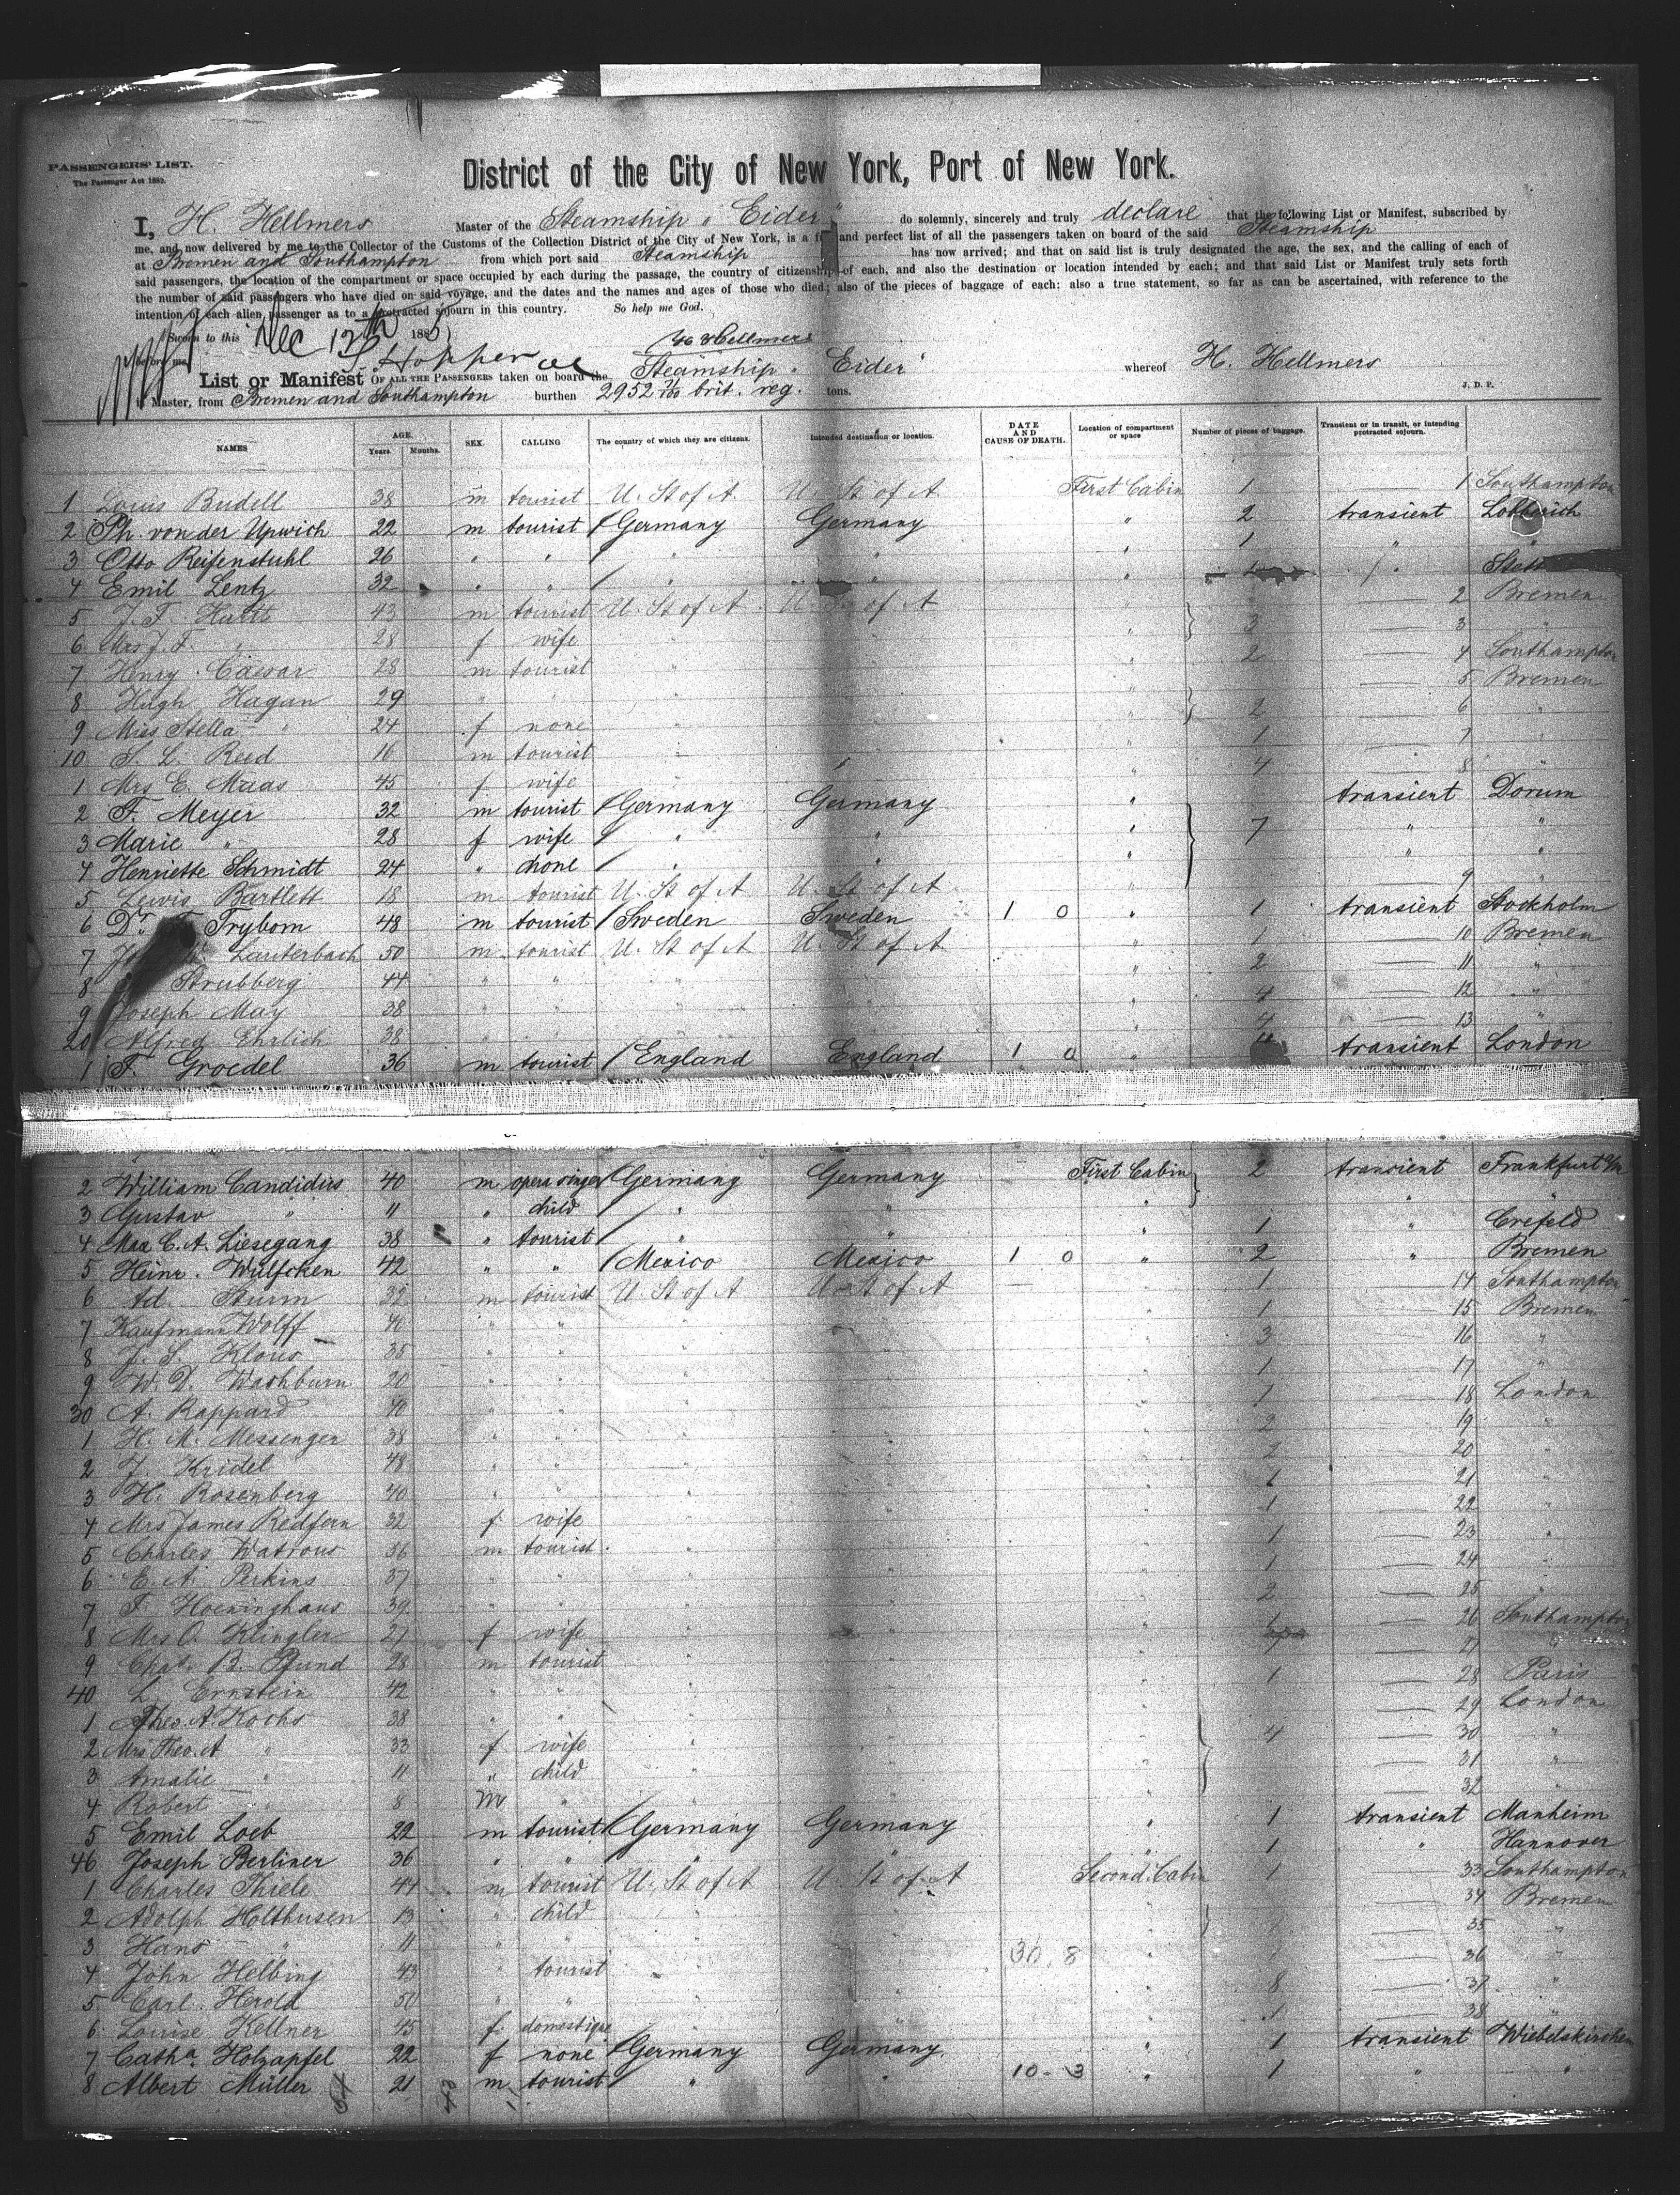 PASSENGERS' LIST.
The Passenger Act 1882.
District of the City of New York, Port of New York.
I, H. Hellmers Master of the Steamship " Eider " do solemnly, sincerely and truly declare that the following List or Manifest, subscribed by
me, and now delivered by me to the Collector of the Customs of the Collection District of the City of New York, is a and perfect list of all the passengers taken on board of the said Steamship
at Bremen and Southampton from which port said Steamship has now arrived; and that on said list is truly designated the age, the sex, and the calling of each of
said passengers, the location of the compartment or space occupied by each during the passage, the country of citizenship of each, and also the destination or location intended by each; and that said List or Manifest truly sets forth
the number of said passengers who have died on said voyage, and the dates and the names and ages of those who died; also of the pieces of baggage of each: also a true statement, so far as can be ascertained, with reference to the
intention of each alien passenger as to a protracted sojourn in this country. So help me God.
Sworn to this Dec 12th 188
before me, Hopper H Hellmers
List or Manifest OF ALL THE PASSENGERS taken on board the Steamship " Eider " whereof H. Hellmers
is Master, from Bremen and Southampton burthen 2952 71/100 brit. reg. tons. J. D. P.
NAMES AGE. Years. Months. SEX. CALLING The country of which they are citizens. Intended destination or location. DATE AND CAUSE OF DEATH. Location of compartment or space Number of pieces of baggage. Transient or in transit, or intending protracted sojourn.
1 Louis Budell 38 m tourist U. St of A. U. St of A. First Cabin 1 — 1 Southampton
2 Ph. von der Upwich 22 m tourist Germany Germany " 2 transient Lobberich
3 Otto Reifenstuhl 26 " " " " " 1 " "
4 Emil Lentz 32 " " " " " "
5 J. F. 43 m tourist U. St of A U. St of A — 2 Bremen
6 Mrs J. F. " 28 f wife " " " 3 — 3 "
7 Henry Caesar 28 m tourist " " " 2 — 4 Southampton
8 Hugh Hagan 29 " " " " " — 5 Bremen
9 Miss Stella " 24 f none " " " 2 — 6 "
10 S. L. Reed 16 m tourist " " " 1 — 7 "
1 Mrs E. Maas 45 f wife " " " 4 — 8 "
2 F. Meyer 32 m tourist Germany Germany " transient Dorum
3 Marie " 28 f wife " " " 7 " "
4 Henriette Schmidt 24 " none " " " " "
5 Lewis Bartlett 18 m tourist U. St of A U. St of A " — 9 "
6 Dr. Trybom 48 m tourist Sweden Sweden 1 0 " 1 transient Stockholm
7 Lauterbach 50 m tourist U. St of A U. St of A " 1 — 10 Bremen
8 Strubberg 44 " " " " " 2 — 11 "
9 Joseph May 38 " " " " " 4 — 12 "
20 Alfred Ehrlich 38 " " " " " 4 — 13 "
1 F. Groedel 36 m tourist England England 1 0 " transient London
2 William Candidus 40 m opera singer Germany Germany First Cabin 2 transient Frankfurt a/m
3 Gustav " 11 " child " " " " "
4 Max C. A. Liesegang 38 " tourist " " " 1 " Crefeld
5 Heinr. Wulfcken 42 " " Mexico Mexico 1 0 " 2 " Bremen
6 Ad. Sturm 32 m tourist U. St of A U. St of A — " 1 — 14 Southampton
7 Kaufmann Wolff 40 " " " " " 1 — 15 Bremen
8 J. S. Klous 35 " " " " " 3 — 16 "
9 W. D. Washburn 20 " " " " " 1 — 17 "
30 A. Rappard 40 " " " " " 1 — 18 London
1 H. M. Messenger 38 " " " " " 2 — 19 "
2 J. Kridel 48 " " " " " 2 — 20 "
3 H. Rosenberg 40 " " " " " 1 — 21 "
4 Mrs James Redfern 32 f wife " " " 1 — 22 "
5 Charles Watrous 56 m tourist " " " 1 — 23 "
6 E. A. Perkins 37 " " " " " 1 — 24 "
7 F. Hoeninghaus 39 " " " " " 2 — 25 "
8 Mrs O. Klingler 27 f wife " " " — 26 Southampton
9 Chas. B. Pfund 28 m tourist " " " — 27 "
40 L. Ernstein 42 " " " " " 1 — 28 Paris
1 Theo. A. Kochs 38 " " " " " — 29 London
2 Mrs Theo. A " 33 f wife " " " 4 — 30 "
3 Amalie " 11 " child " " " — 31 "
4 Robert " 8 m " " " " — 32 "
5 Emil Loeb 22 m tourist Germany Germany " 1 transient Manheim
46 Joseph Berliner 36 " " " " " 1 " Hannover
1 Charles Thiele 44 m tourist U. St of A U. St of A Second Cabin 1 — 33 Southampton
2 Adolph Holthusen 13 " child " " " — 34 Bremen
3 Hans " 11 " " " " " — 35 "
4 John Helbing 43 " tourist " " 30. 8 " — 36 "
5 Carl Herold 50 " " " " " 8 — 37 "
6 Louise Kellner 45 f domestique " " " 1 — 38 "
7 Catha. Holzapfel 22 f none Germany Germany. " 1 transient Wiebelskirchen
8 Albert Müller 21 m tourist " " 10 - 3 " 1 " "